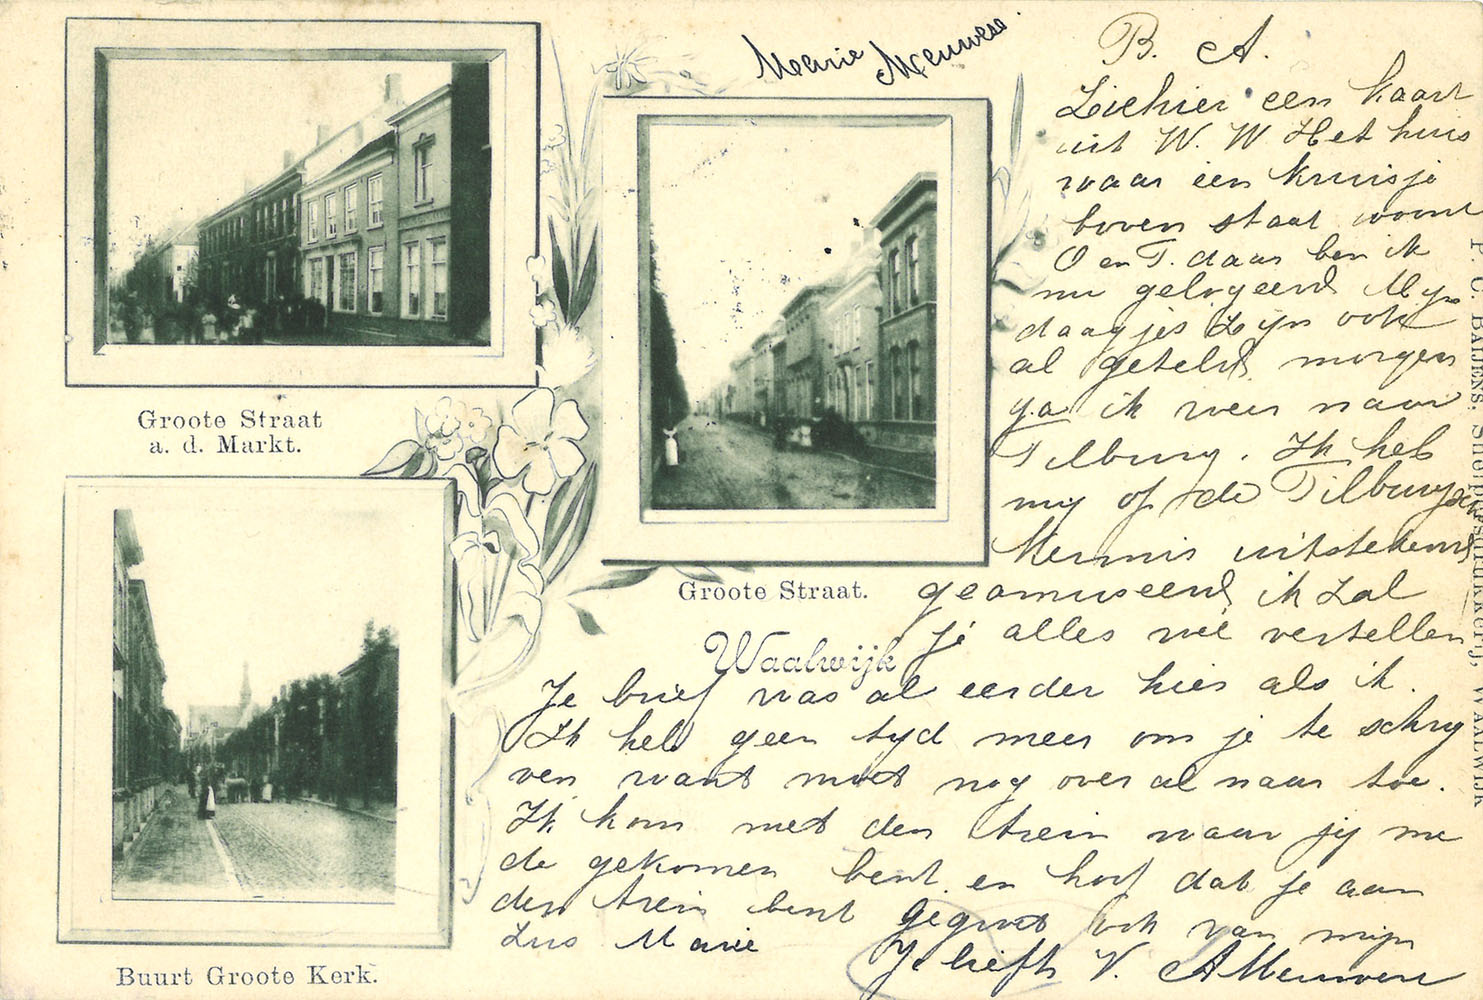 Groote Straat
a. d. Markt.
Groote Straat.
Buurt Groote Kerk.
Waalwijk
Marie Meuwese
B. A.
Ziehier een kaart
uit W. W Het huis
waar een kruisje
boven staat woont
O en T. daar ben ik
nu gelogeerd Myn
daagjes zyn ook
al geteld, morgen
ga ik weer naar
Tilburg. Ik heb
my op de Tilburgsche
Kermis uitstekend
geamuseerd, ik zal
je alles wel vertellen
Je brief was al eerder hier als ik.
Ik heb geen tyd meer om je te schry
ven want moet nog over al naar toe.
Ik kom met den trein waar jij me
de gekomen bent en hoop dat je aan
den trein bent gegroet ook van mijn
Zus Marie
Je liefh. V. A Meuwese
P. C. BAIJENS. Snelpersdrukkerij, WAALWIJK